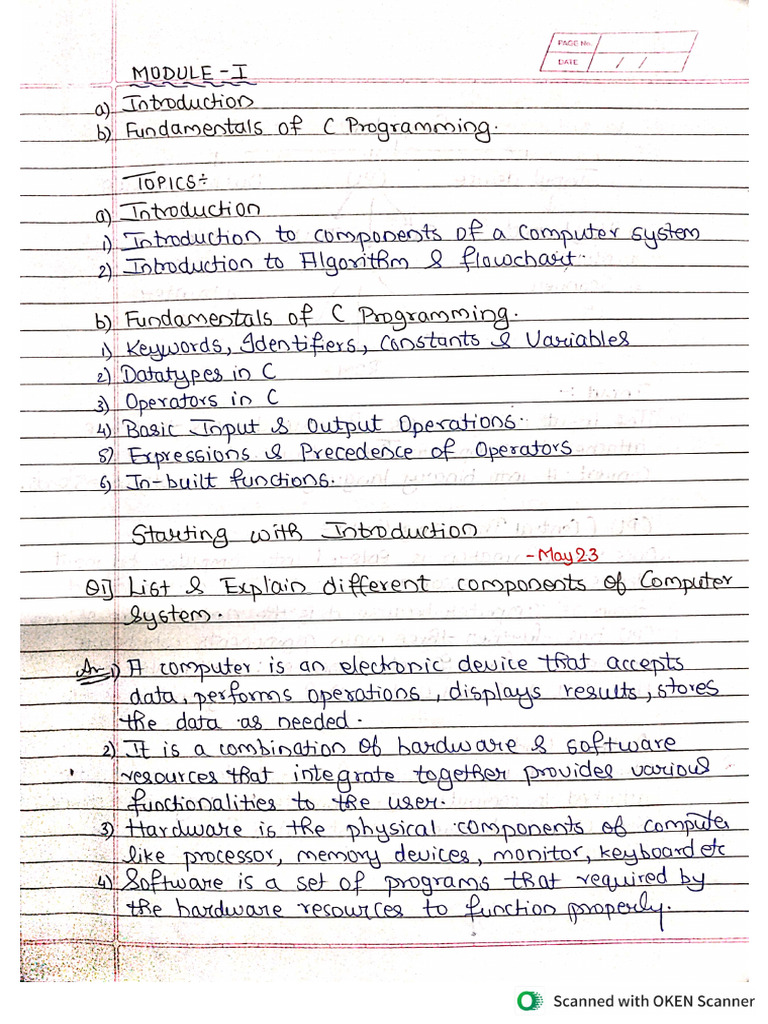 PAGE No.
DATE / /
MODULE - I
a) Introduction
b) Fundamentals of C Programming.
TOPICS÷
a) Introduction
1) Introduction to components of a Computer system
2) Introduction to Algorithm & flowchart.
b) Fundamentals of C Programming.
1) Keywords, Identifiers, Constants & Variables
2) Datatypes in C
3) Operators in C
4) Basic Input & Output Operations.
5) Expressions & Precedence of Operators
6) In-built functions.
Starting with Introduction
- May 23
Q1] List & Explain different components of Computer
System.
Ans 1) A computer is an electronic device that accepts
data, performs operations, displays results, stores
the data as needed.
2) It is a combination of hardware & software
resources that integrate together provides various
functionalities to the user.
3) Hardware is the physical components of computer
like processor, memory devices, monitor, keyboard etc
4) Software is a set of programs that required by
the hardware resources to function properly.
Scanned with OKEN Scanner